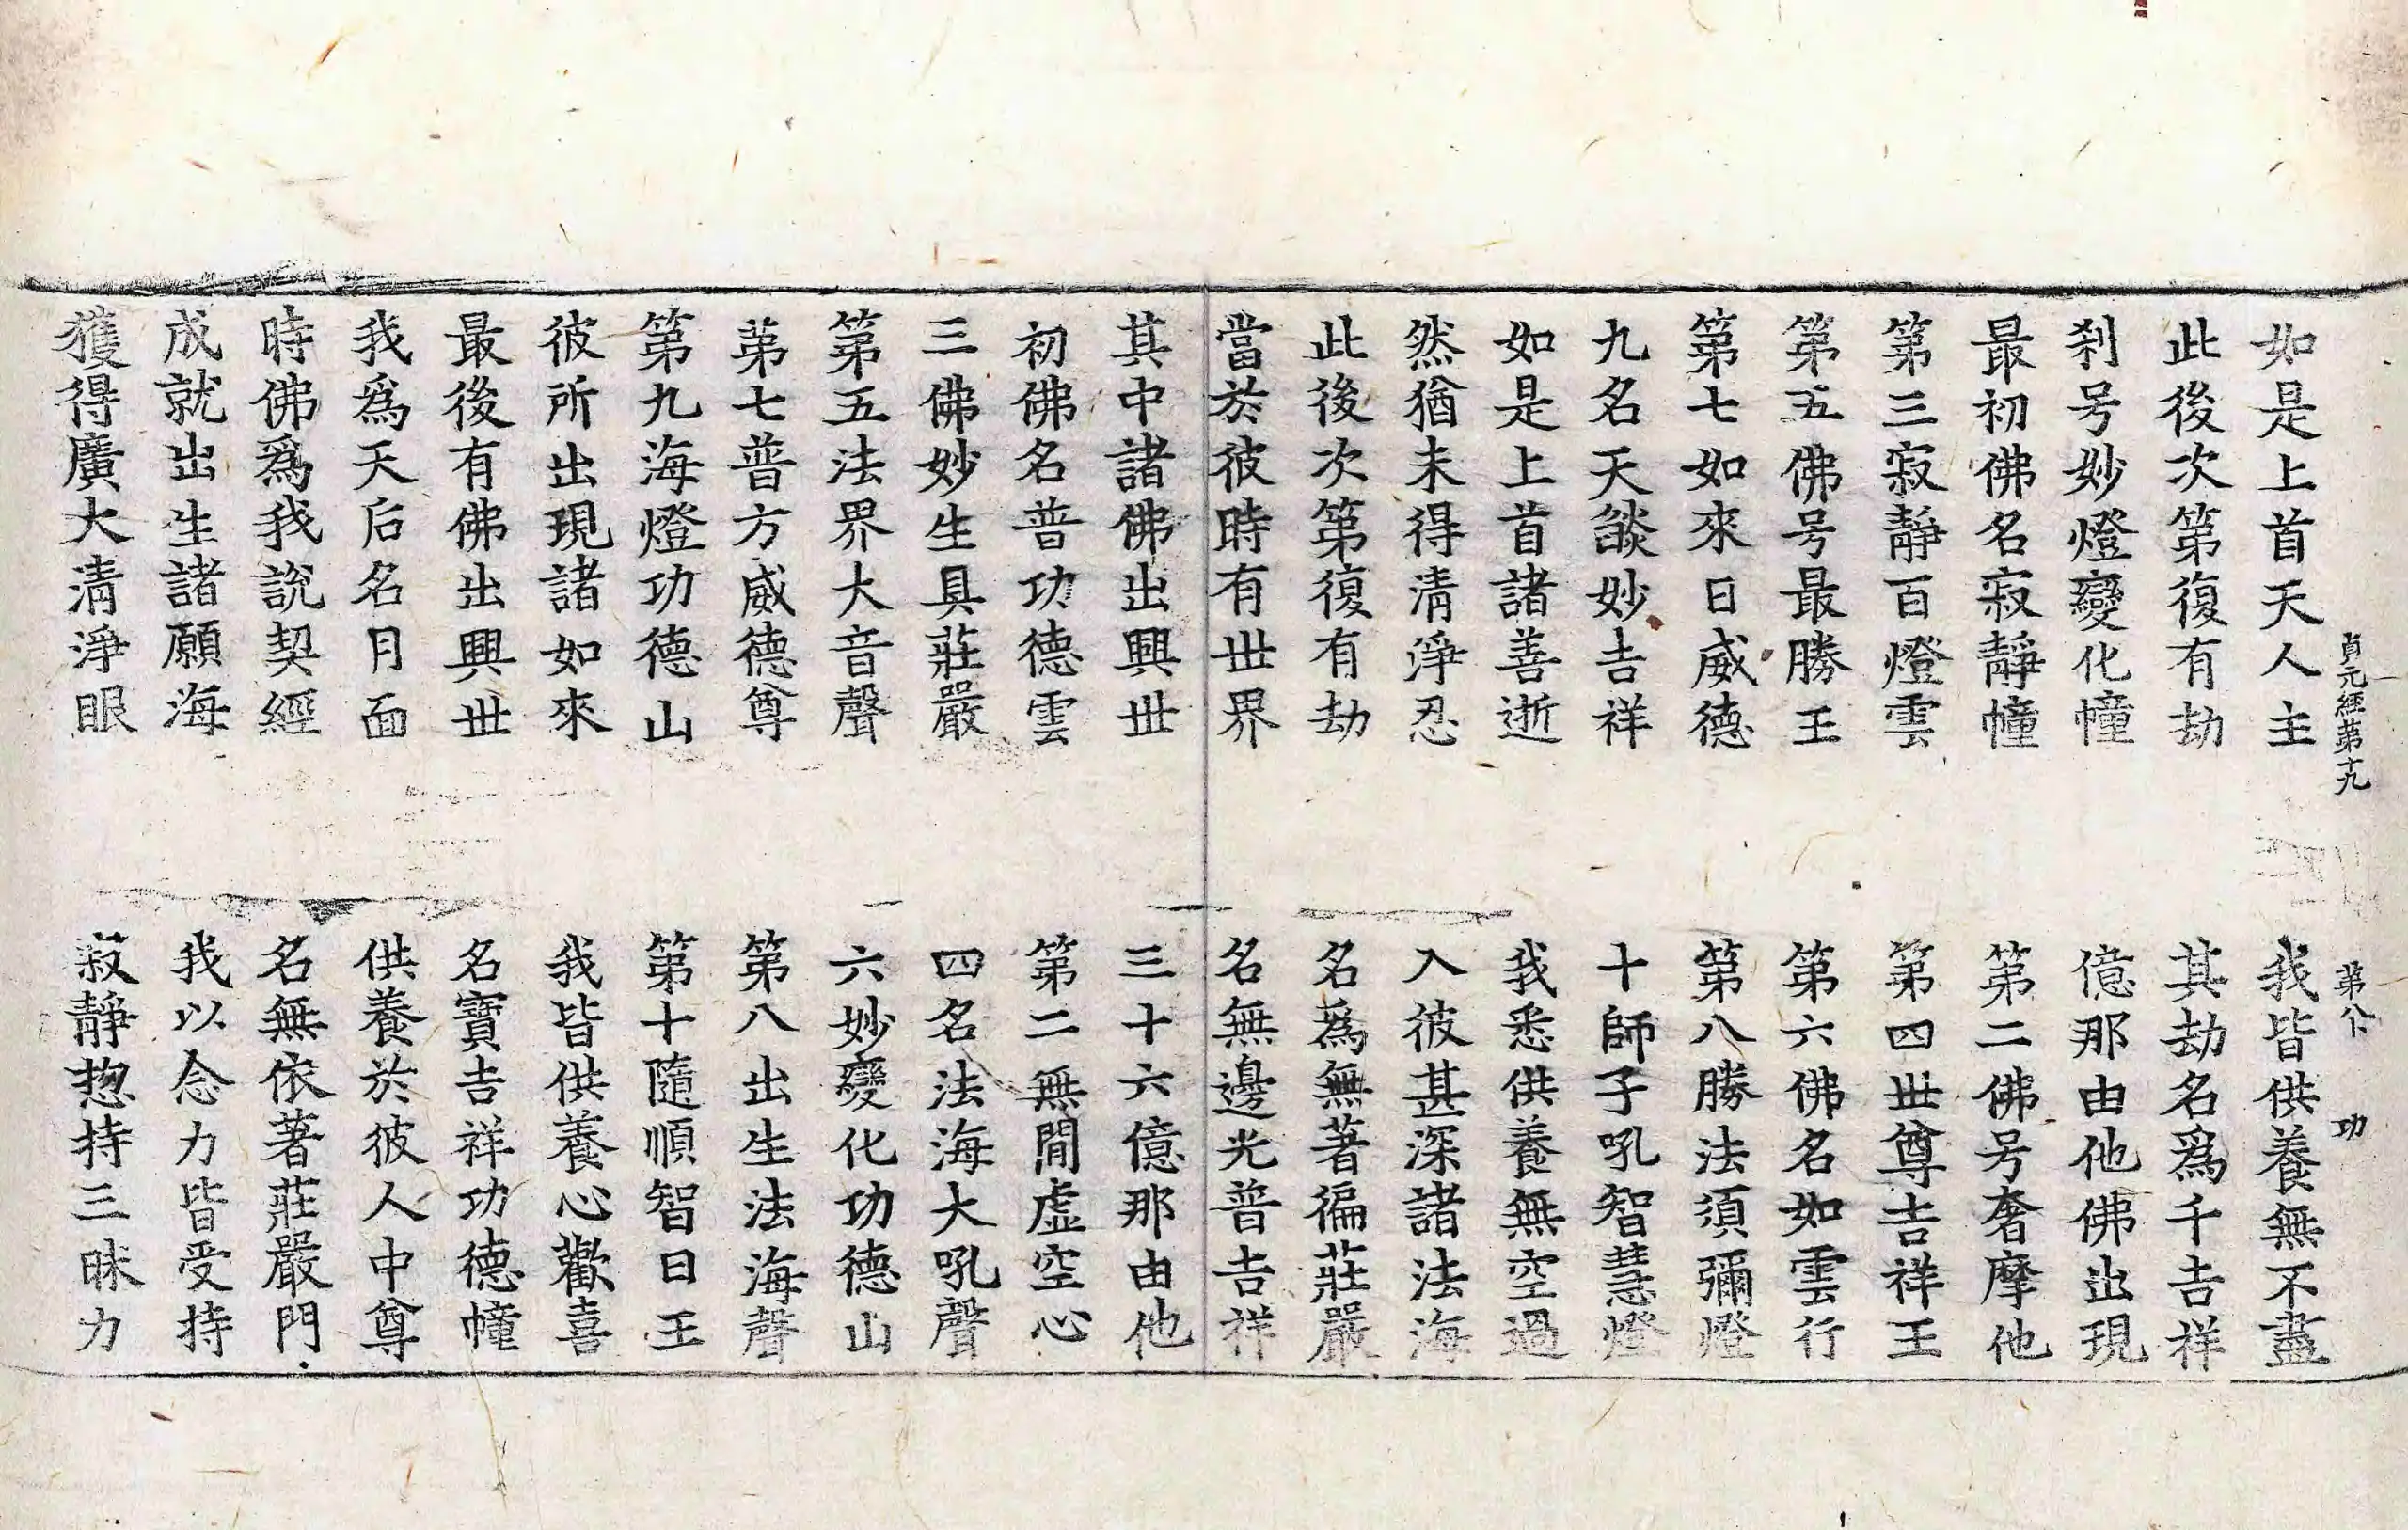 如是上首天人主　我皆供養無不盡
貞元經第十九　第八　功
此後次第復有劫　其劫名爲千吉祥
刹号妙燈變化幢　億那由他佛出現
最初佛名寂靜幢　第二佛号奢摩他
第三寂靜百燈雲　第四世尊吉祥王
第五佛号最勝王　第六佛名如雲行
第七如來日威德　第八勝法須彌燈
九名天燄妙吉祥　十師子吼智慧燈
如是上首諸善逝　我悉供養無空過
然猶未得清淨忍　入彼甚深諸法海
此後次第復有劫　名爲無著徧莊嚴
當於彼時有世界　名無邊光普吉祥
其中諸佛出興世　三十六億那由他
初佛名普功德雲　第二無閒虛空心
三佛妙生具莊嚴　四名法海大吼聲
第五法界大音聲　六妙變化功德山
苐七普方威德尊　第八出生法海聲
第九海燈功德山　第十隨順智日王
彼所出現諸如來　我皆供養心歡喜
最後有佛出興世　名寶吉祥功德幢
我爲天后名月面　供養於彼人中尊
時佛爲我說契經　名無依著莊嚴門
成就出生諸願海　我以念力皆受持
獲得廣大清淨眼　寂靜惣持三昧力